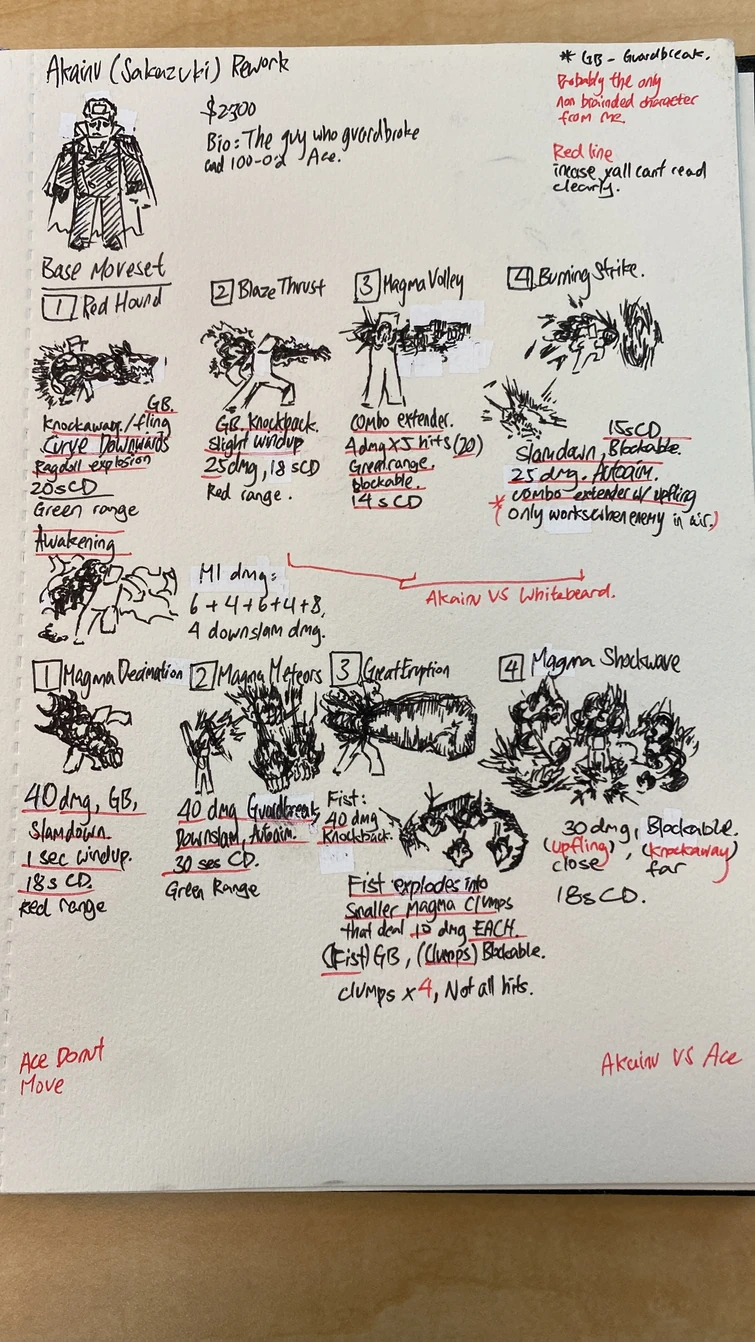 Akainu (Sakazuki) Rework
$2300
Bio: The guy who guardbroke
and 100-0'd Ace.
* GB - Guardbreak.
Probably the only
non brainded character
from me.
Red line
incase yall cant read
clearly.
Base Moveset
1 Red Hound
GB.
Knockaway/fling
Curve Downwards
Ragdoll explosion
20sCD
Green range
2 Blaze Thrust
GB, Knockback.
Slight windup
25dmg, 18sCD
Red range.
3 Magma Volley
Combo extender.
4dmg x 5 hits (20)
Green range.
Blockable.
14sCD
4 Burning Strike.
15sCD
Slamdown, Blockable.
25 dmg. Autoaim.
* combo extender w/ upfling
(only works when enemy in air.)
Akainu VS Whitebeard.
Awakening
M1 dmg:
6+4+6+4+8,
4 downslam dmg.
1 Magma Decimation
40dmg, GB,
Slamdown.
1 sec windup.
18s CD.
Red range
2 Magma Meteors
40 dmg Guardbreak,
Downslam, Autoaim.
30 ses CD.
Green Range
3 Great Eruption
Fist:
40 dmg
Knockback.
Fist explodes into
Smaller Magma Clumps
that deal 10 dmg EACH.
(Fist) GB, (Clumps) Blockable.
Clumps x4, Not all hits.
4 Magma Shockwave
30dmg, Blockable.
(upfling), (knockaway)
close far
18s CD.
Ace Donut
Move
Akainu VS Ace